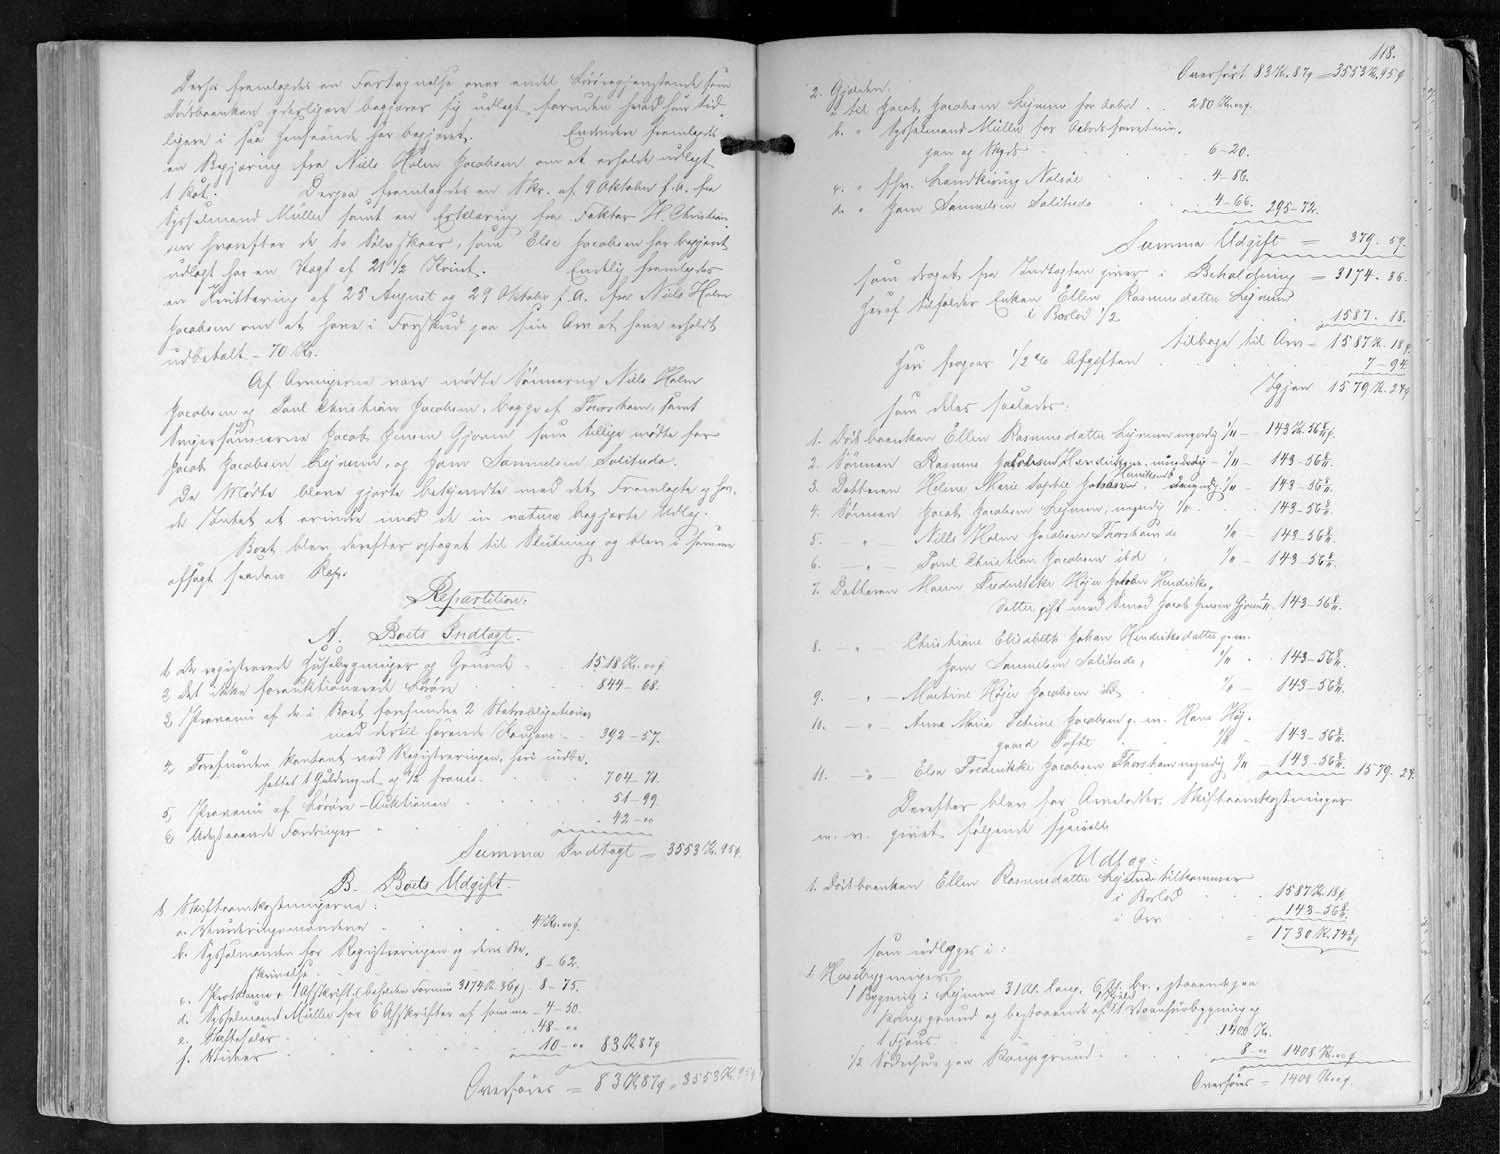 Derpaa fremlagdes en Fortegnelse over endel Løsøregjenstande som
Enkefruen yderligere begjærer sig udlagt, foruden hvad hun tid-
ligere i saa Henseende har begjæret. Endvidere fremlagdes
en Begjæring fra Niels Holm Jacobsen om at erholde udlagt
1 Kat. Derpaa fremlagdes en Skr. af 9 Oktober f.A. fra
Sysselmand Müller samt en Erklæring fra Faktor H. Christian-
sen hvorefter de to Sølvskeer, som Else Jacobsen har begjæret
udlagt har en Vægt af 21 1/2 Kvint. Endelig fremlagdes
en Kvittering af 25 August og 29 Oktober f.A. fra Niels Holm
Jacobsen om at have i Forskud paa sin Arv at have erholdt
udbetalt – 70 Kr.
Af Arvingerne vare mødte Sønnerne Niels Holm
Jacobsen og Poul Christian Jacobsen, begge af Thorshavn, samt
Svigersønnerne Jacob Jensen Gjoveraa som tillige mødte for
Jacob Jacobsen Lejnum, og Hans Samuelsen Solitude.
De Mødte bleve gjorte bekjendte med det Fremlagte og hav-
de Intet at erindre mod de in natura begjærte Udlæg.
Boet blev derefter optaget til Slutning og blev i samme
afsagt saadan Rep.
Repartition.
A. Boets Indtægt.
1. De registrerede Husebygninger og Grund 1518 Kr. 00 ø.
2, Det ikke forauktionerede Løsøre 844 – 68.
3, Provenu af de i Boet forefundne 2 Statsobligationer
med dertil hørende Kouponer 392 – 57.
4, Forefunden kontant ved Registreringen, heri indbe-
fattet 1 Guldmynt og 1/2 Franc. 704 – 71.
5, Provenu af Løsøre-Auktionen 51 – 99
6, Udestaaende Fordringer 42 – 00
Summa Indtægt = 3553 Kr. 95 ø.
B. Boets Udgift.
1. Skifteomkostningerne:
a. Vurderingsmændene 4 Kr. 00 ø.
b. Sysselmanden for Registreringen og dens Be-
skrivelse 8 – 62.
c. Protokome + 1 Afskrift (beholden Formue 3174 Kr. 36 ø) 8 – 75.
d. Sysselmand Müller for 6 Afskrifter af samme – 4 – 50.
e. Skiftesalær 48 – 00
f. Kister 10 – 00 83 Kr. 87 ø
Overføres = 83 Kr. 87 ø = 3553 Kr. 95 ø.
118.
Overført 83 Kr. 87 ø = 3553 Kr. 95 ø
2. Gjælden:
a. til Jacob Jacobsen Lejnum for Kabot 280 Kr. 00 ø.
b. " Sysselmand Müller for Arbeidsforretnin-
gen og Skyds 6 – 20.
c. " Handelskøbmand Nolsøe 4 – 86.
d. " Hans Samuelsen Solitude 4 – 66. 295 – 72.
Summa Udgift = 379. 59.
som dragen fra Indtægten giver i Beholdning = 3174. 36.
Heraf tilfalder Enken Ellen Rasmusdatter Lejnum
i Boslod 1/2 1587. 18.
tilbage til Arv = 1587 Kr. 18 ø.
Heri fragaar 1/2 % Afgiften 7 – 94.
Igjen 1579 Kr. 24 ø
som deles saaledes:
1. Enkefruen Ellen Rasmusdatter Lejnum myndig 1/11 – 143 Kr. 56 8/11 ø.
2. Sønnen Rasmus Jacobsen Hendriksen, myndig – 1/11 – 143 – 56 8/11.
3. Datteren Helene Marie Sophie Jacobsen Hendriksd. umyndig 1/11 – 143 – 56 8/11.
4. Sønnen Jacob Jacobsen Lejnum, myndig 1/11 143 – 56 8/11.
5. – " – Niels Holm Jacobsen Thorshavn do 1/11 – 143 – 56 8/11.
6. – " – Poul Christian Jacobsen ibd 1/11 – 143 – 56 8/11.
7. Datteren Maren Frederikke Højer Jacobsen Hendriks-
datter gift med Smed Jacob Jensen Gjoveraa 1/11 – 143 – 56 8/11.
8. – " – Christiane Elisabeth Johan Hendriksdatter g. m.
Hans Samuelsen Solitude, 1/11 143 – 56 8/11.
9. – " – Martine Højer Jacobsen ibd 1/11 – 143 – 56 8/11.
10. – " – Anne Maria Petrine Jacobsen g. m. Hans Høj-
gaard Toftt 1/11 – 143 – 56 8/11.
11. – " – Else Frederikke Jacobsen Thorshavn myndig 1/11 – 143 – 56 8/11. 1579. 24.
Derefter blev for Arvelodder, Skifteomkostninger
m. v. givet følgende specielle
Udlæg:
1. Enkefruen Ellen Rasmusdatter Lejnum tilkommer
i Boslod 1587 Kr. 18 ø.
i Arv 143 – 56 8/11.
= 1730 Kr. 74 8/11 ø
som udlægges i:
1. Husebygninger:
1 Bygning i Lejnum 31 Al. lang, 6 Al. br., staaende paa
Kongsgrund og bestaaende af 1 Vaaningsbygning og
1 Fjøs 1400 Kr.
1/2 Nødehus paa Kongsgrund 8 – 00 1408 Kr. 00 ø
Overføres = 1408 Kr. 00 ø.